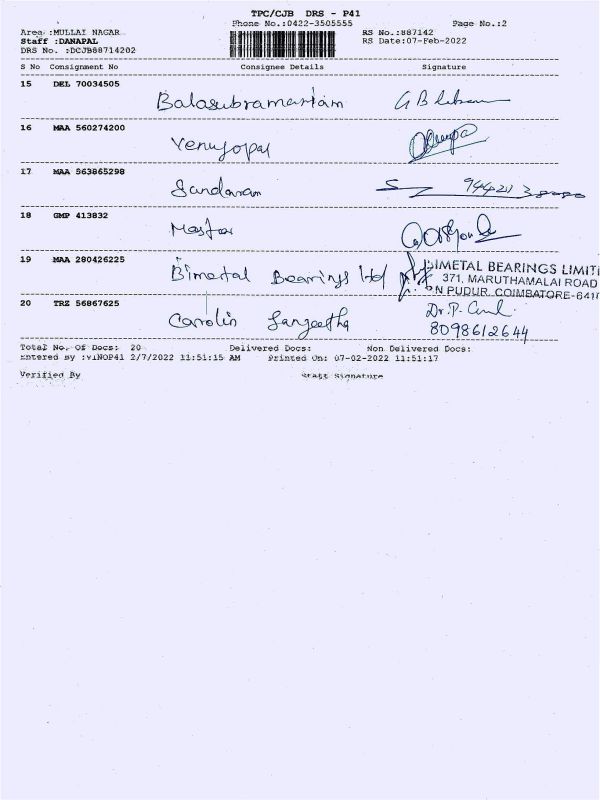 TPC/CJB DRS - P41
Phone No.:0422-3505555 Page No.:2
Area :MULLAI NAGAR RS No.:887142
Staff :DANAPAL RS Date:07-Feb-2022
DRS No. :DCJB88714202
S No Consignment No Consignee Details Signature
15 DEL 70034505
Balasubramaniam
16 MAA 560274200
Venugopal
17 MAA 563865298
Sundaram
18 GMP 413832
19 MAA 280426225
Bimetal Bearings Ltd
BIMETAL BEARINGS LIMIT
371, MARUTHAMALAI ROAD
N PUDUR, COIMBATORE-641
20 TRZ 56867625
Carolin Sangeetha Dr.P.
8098612644
Total No. Of Docs: 20 Delivered Docs: Non Delivered Docs:
Entered By :VINOP41 2/7/2022 11:51:15 AM Printed On: 07-02-2022 11:51:17
Verified By Staff Signature